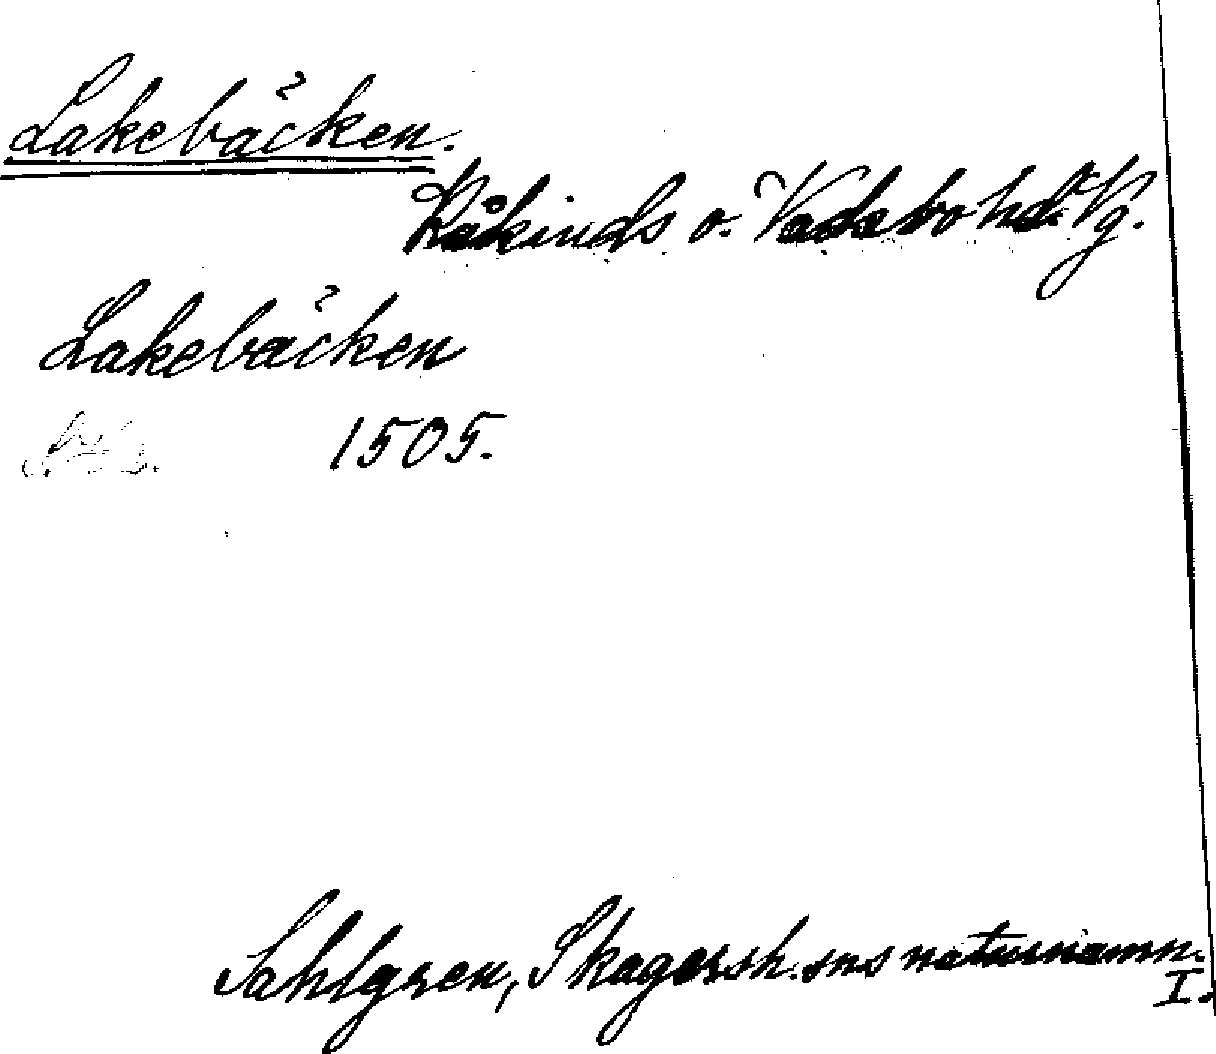 Lakebäcken.
Kåkinds o. Vadsbo hd. Vg.
Lakebäcken
1505.
Sahlgren, Skagersh. sns naturnamn.
I.